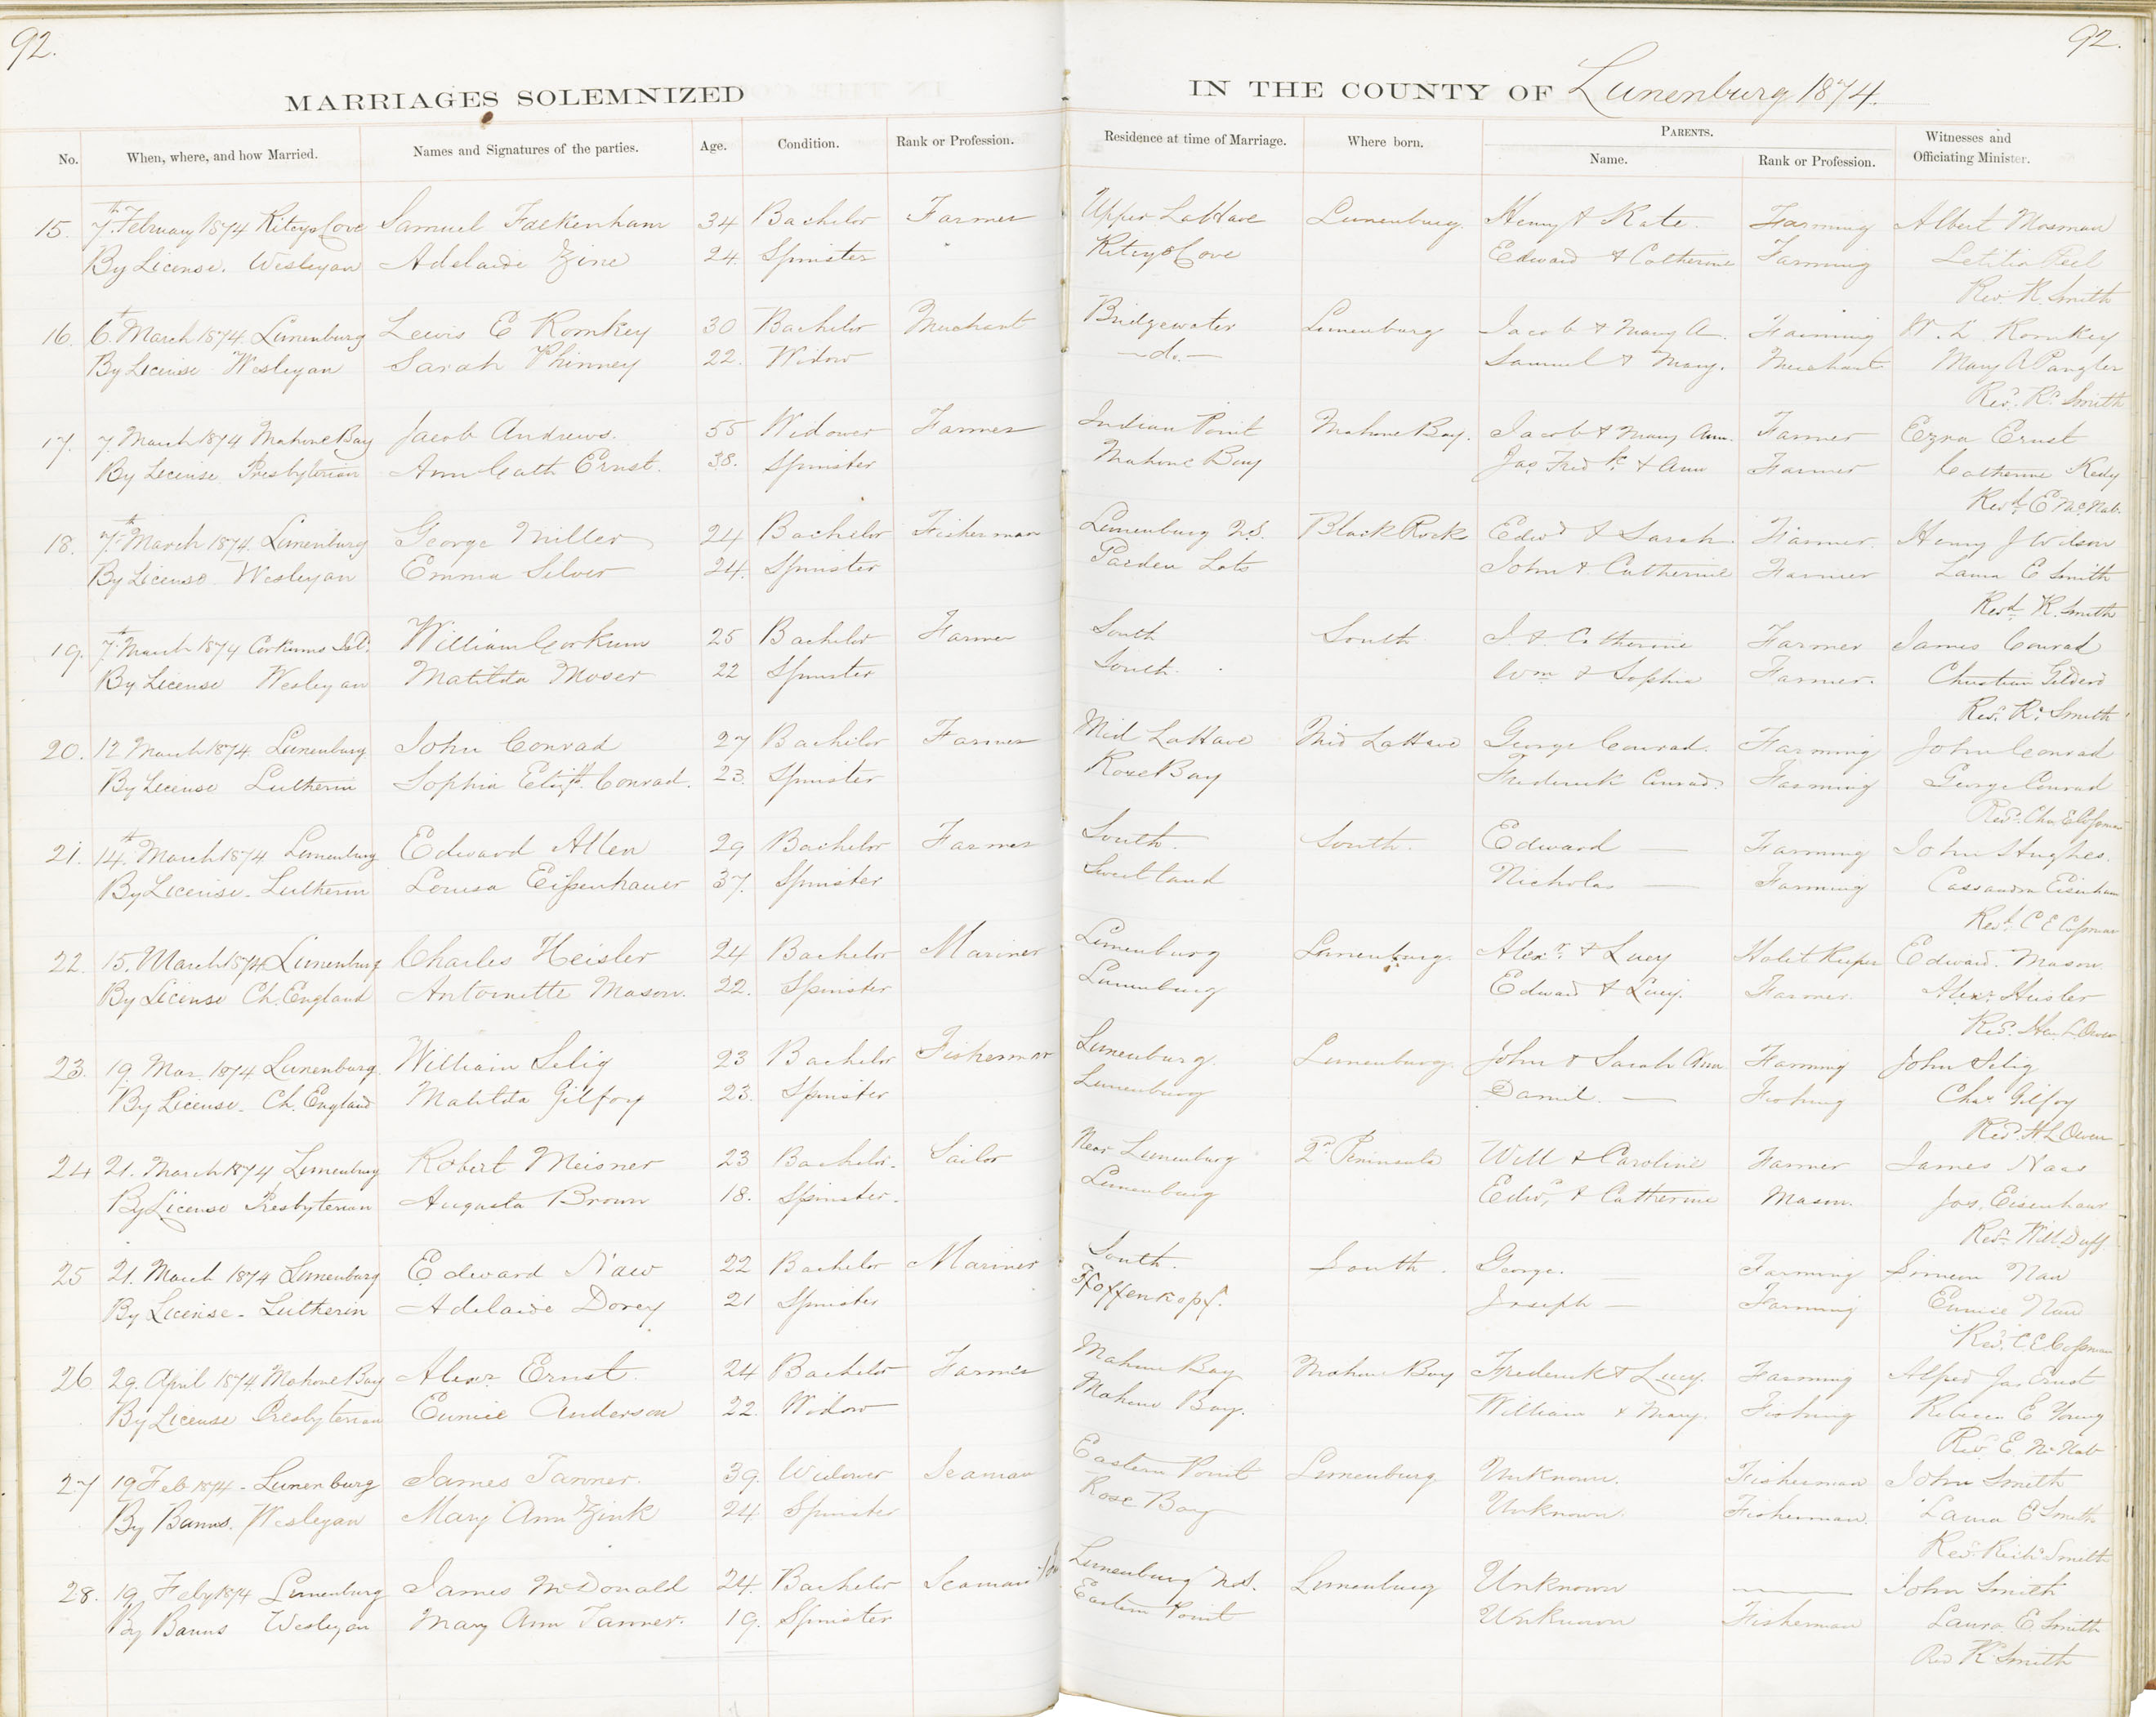 92.
92.
MARRIAGES SOLEMNIZED
IN THE COUNTY OF Lunenburg 1874.
No. When, where, and how Married. Names and Signatures of the parties. Age. Condition. Rank or Profession. Residence at time of Marriage. Where born. PARENTS. Name. Rank or Profession. Witnesses and Officiating Minister.
15. 7th February 1874 Riteys Cove Samuel Falkenham 34 Bachelor Farmer Upper LaHave Lunenburg. Henry & Kate. Farming Albert Mosman
By License. Wesleyan Adelaide Zine 24. Spinster Riteys Cove Edward & Catherine Farming Letitia Peel
Rev. R. Smith
16. 6th March 1874. Lunenburg Lewis E Romkey 30 Bachelor Merchant Bridgewater Lunenburg Jacob & Mary A. Farming W. L. Romkey
By License Wesleyan Sarah Phinney 22. Widow —do.— Samuel & Mary. Merchant Mary A Pangler
Rev. R. Smith
17. 7. March 1874 Mahone Bay Jacob Andrews. 55 Widower Farmer Indian Point Mahone Bay. Jacob & Mary Ann. Farmer Ezra Ernst
By License Presbyterian Ann Cath Ernst. 38. Spinster Mahone Bay Jas Fredk & Ann Farmer Catherine Kedy
Revd E McNab
18. 7th March 1874. Lunenburg George Miller 24 Bachelor Fisherman Lunenburg NS. Black Rock Edwd & Sarah. Farmer. Henry J Wilson
By License Wesleyan Emma Silver 24. Spinster Garden Lots John & Catherine Farmer Laura E Smith
Revd R. Smith
19. 7th March 1874 Corkums Isld. William Corkum 25 Bachelor Farmer South South J. & Catherine Farmer James Conrad
By License Wesleyan Matilda Moser 22 Spinster South. Wm & Sophia Farmer. Christian
Rev. R. Smith
20. 12 March 1874. Lunenburg. John Conrad 27 Bachelor Farmer Mid LaHave Mid LaHave George Conrad. Farming John Conrad
By License Lutherin Sophia Elizth. Conrad. 23. Spinster Rose Bay Frederick Conrad. Farming George Conrad
Rev. Chas E Cossman
21. 14th March 1874 Lunenburg Edward Allen 29 Bachelor Farmer South. South. Edward — Farming John Hughes.
By License. Lutherin Louisa Eissenhauer 37. Spinster Nicholas — Farming Cassandra Eisenhaur
Revd. C E Cossman
22. 15. March 1874 Lunenburg Charles Heisler 24 Bachelor Mariner Lunenburg Lunenburg. Alexr. & Lucy Hotel Keeper Edward. Mason
By License Ch. England Antoinette Mason. 22. Spinster Lunenburg Edward & Lucy. Farmer. Alexr. Heisler
Rev. Hen. L Owen
23. 19 Mar. 1874 Lunenburg. William Selig 23 Bachelor Fisherman Lunenburg. Lunenburg. John & Sarah Ann Farming John Selig
By License. Ch. England Matilda Gilfoy 23. Spinster Lunenburg Daniel. — Fishing Chas Gilfoy
Revd. H L Owen
24 21. March 1874 Lunenburg Robert Meisner 23 Bachelor. Sailor Near Lunenburg 2nd Peninsula Will & Caroline Farmer James Naas
By License Presbyterian Augusta Brown 18. Spinster. Lunenburg Edwd, & Catherine Mason. Jas. Eisenhaur
Revd. Will. Duff
25 21. March 1874 Lunenburg Edward Naw 22 Bachelor Mariner South. South. George. — Farming Simeon Naw
By License. Lutherin Adelaide Dorey 21 Spinster Ffoffenkopf. Joseph — Farming Eunice Naw
Rev. C E Cossman
26 29. April 1874 Mahone Bay Alexr Ernst. 24 Bachelor Farmer Mahone Bay Mahone Bay Frederick & Lucy. Farming Alfred Jas Ernst
By License Presbyterian Eunice Anderson 22. Widow Mahone Bay. William & Mary. Fishing Rebecca E Young
Rev. E McNab
27 19 Feb 1874. Lunenburg James Tanner. 39. Widower Seaman Eastern Point Lunenburg Unknown. Fisherman John Smith
By Banns. Wesleyan Mary Ann Zink 24 Spinster Rose Bay Unknown. Fisherman. Laura E Smith
Rev. Richd Smith
28. 19 Feby 1874 Lunenburg James McDonald 24. Bachelor Seaman Lunenburg NS. Lunenburg Unknown — John Smith
By Banns Wesleyan Mary Ann Tanner. 19. Spinster Eastern Point Unknown Fisherman Laura E. Smith
Rev R. Smith